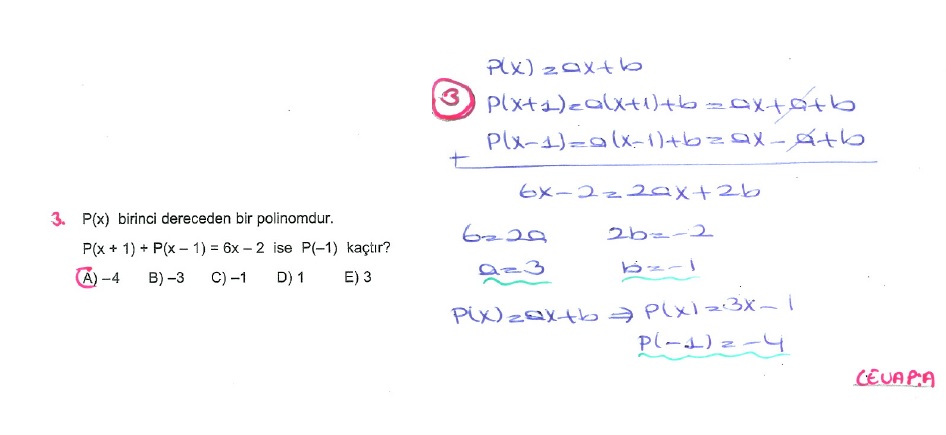 3. P(x) birinci dereceden bir polinomdur.
P(x + 1) + P(x – 1) = 6x – 2 ise P(–1) kaçtır?
A) –4 B) –3 C) –1 D) 1 E) 3
P(x) = ax+b
3 P(x+1)=a(x+1)+b = ax+a+b
P(x-1)=a(x-1)+b = ax-a+b
+
6x-2 = 2ax+2b
6=2a 2b=-2
a=3 b=-1
P(x)=ax+b ⇒ P(x)=3x-1
P(-1) = -4
CEVAP:A